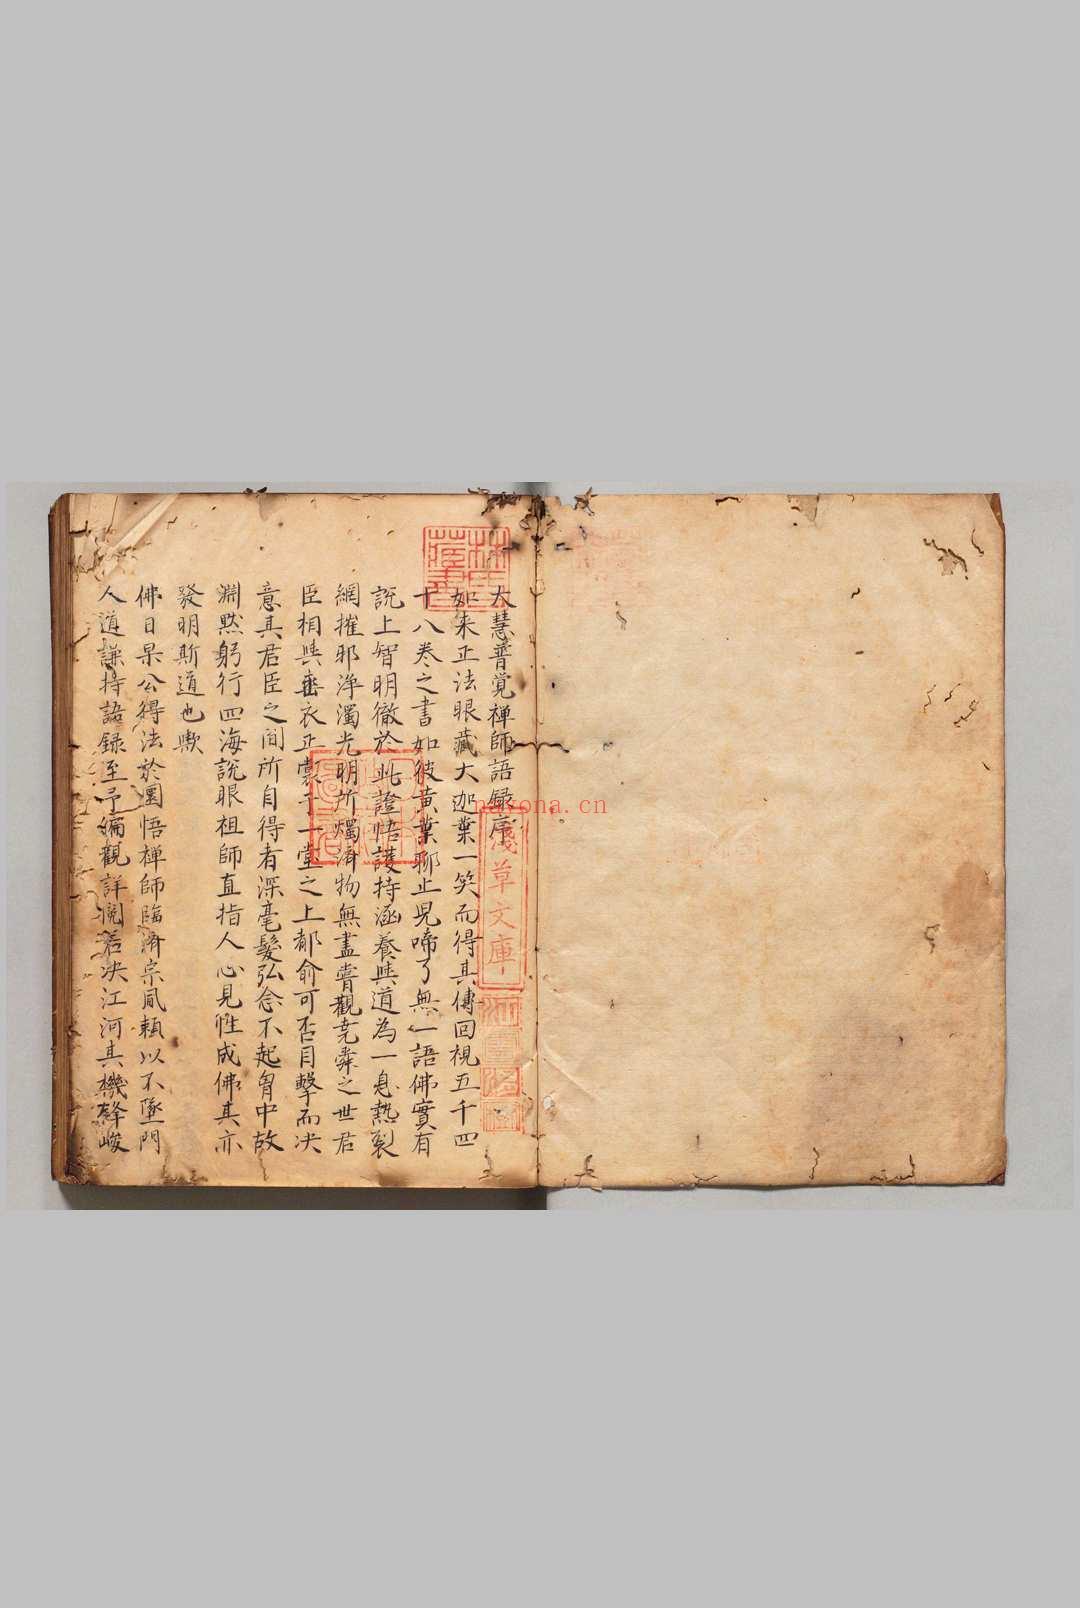 大慧普覚禅師語録序
如来正法眼藏大迦葉一笑而得其傳回視五千四
十八巻之書如彼黄葉聊止児啼了無一語佛實有
説上智明徹於此證悟護持涵養與道為一息熱裂
網摧邪浄濁光明所燭済物無盡嘗觀堯舜之世君
臣相與垂衣正裳于一堂之上都俞可否目擊而决
意其君臣之間所自得者深毫髮弘念不起胷中故
淵黙躬行四海説眼祖師直指人心見性成佛其亦
發明斯道也歟
佛日杲公得法於圜悟禅師臨済宗風頼以不墜門
人道謙持語録至予徧觀詳閲若决江河其機鋒峻
林氏藏書
淺草文庫
nayona.cn